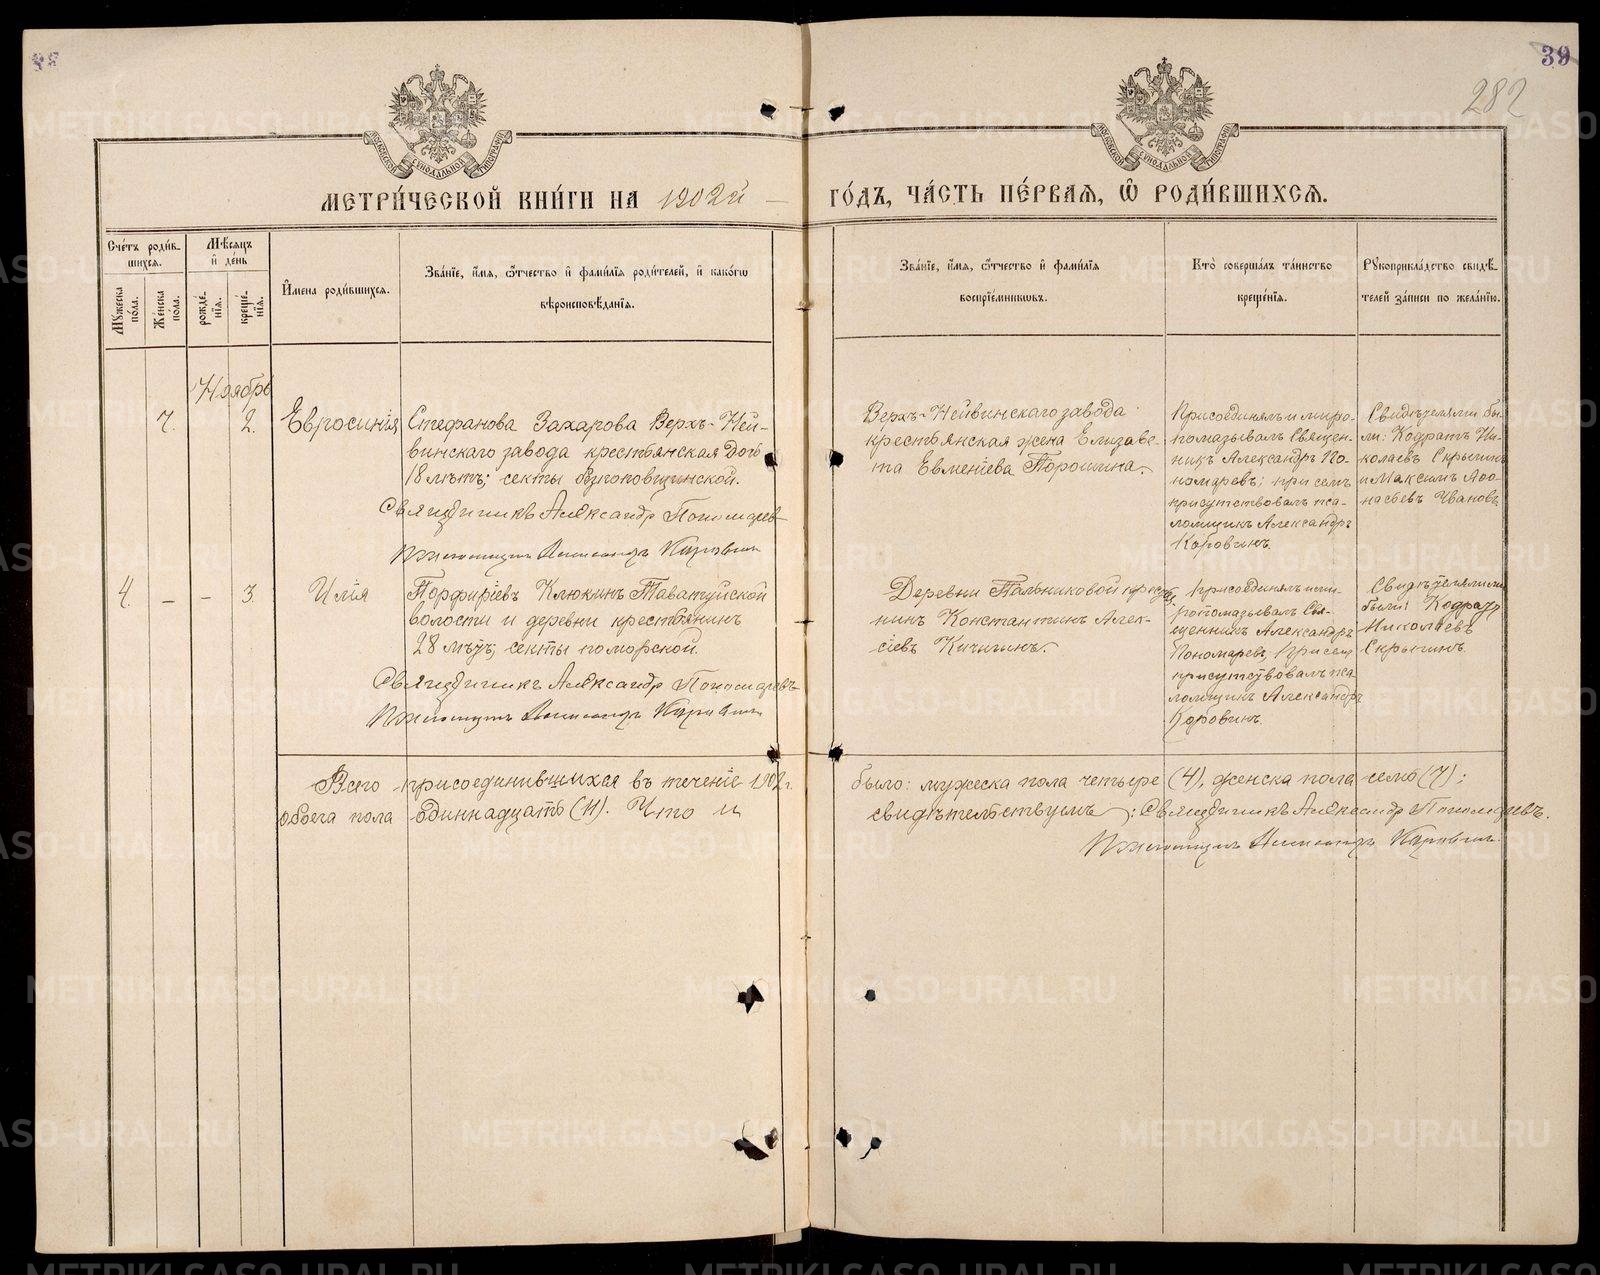 39
282
МОСКОВСКОЙ СѴНОДАЛЬНОЙ ТИПОГРАФІИ
МОСКОВСКОЙ СѴНОДАЛЬНОЙ ТИПОГРАФІИ
МЕТРИ́ЧЕСКОЙ КНИ́ГИ НА 1902й ГО́ДЪ, ЧА́СТЬ ПЕ́РВАѦ, Ѡ҆ РОДИ́ВШИХСѦ.
Сче́тъ роди́в-
шихсѧ.
Мѣ́сѧцъ
и҆ де́нь
Мꙋ́жеска по́ла.
Же́нска по́ла.
рожде́-
нїѧ.
креще́-
нїѧ.
И҆мена роди́вшихсѧ.
Зва́нїе, и҆́мѧ, ѻ҆́тчество и҆ фами́лїѧ роди́телей, и҆ како́гѡ
вѣроисповѣ́данїѧ.
Зва́нїе, и҆́мѧ, ѻ҆́тчество и҆ фами́лїѧ
воспрїе́мникѡвъ.
Кто̀ соверша́лъ та́инство
креще́нїѧ.
Рꙋкоприкла́дство свидѣ́-
телей за́писи по жела́нїю.
Ноябрь
7. 2. Евросинія
Стефанова Захарова Верхъ-Ней-
винскаго завода крестьянская дочь
18 лѣтъ; секты безпоповщинской.
Священникъ Александр Пономарев
Псаломщикъ Александръ Коровинъ
Верхъ-Нейвинскаго завода
крестьянская жена Елизаве-
та Евменіева Порошина.
Присоединялъ и миро-
помазывалъ Священ-
никъ Александръ По-
номаревъ; при семъ
присутствовалъ пса-
ломщикъ Александръ
Коровинъ.
Свидѣтелями бы-
ли: Кодратъ Ни-
колаевъ Скрыпинъ
и Максимъ Аѳа-
насьевъ Ивановъ
4. – – 3. Илія
Порфиріевъ Клюкинъ Таватуйской
волости и деревни крестьянинъ
28 лѣтъ; секты поморской.
Священникъ Александр Пономаревъ
Псаломщикъ Александръ Коровинъ
Деревни Пальниковой кресть
нинъ Константинъ Алек-
сіевъ Кичигинъ.
Присоединялъ и ми-
ропомазывалъ Свя-
щенникъ Александръ
Пономаревъ, при сем
присутствовалъ пса-
ломщикъ Александръ
Коровинъ.
Свидѣтелями
были: Кодратъ
Николаевъ
Скрыпинъ.
Всего присоединившихся въ теченіе 1902 г. было: мужеска пола четыре (4), женска пола семь (7);
обоега пола одиннадцать (11). Что и свидѣтельствуемъ: Священникъ Александр Пономаревъ.
Псаломщикъ Александръ Коровинъ.
METRIKI.GASO-URAL.RU